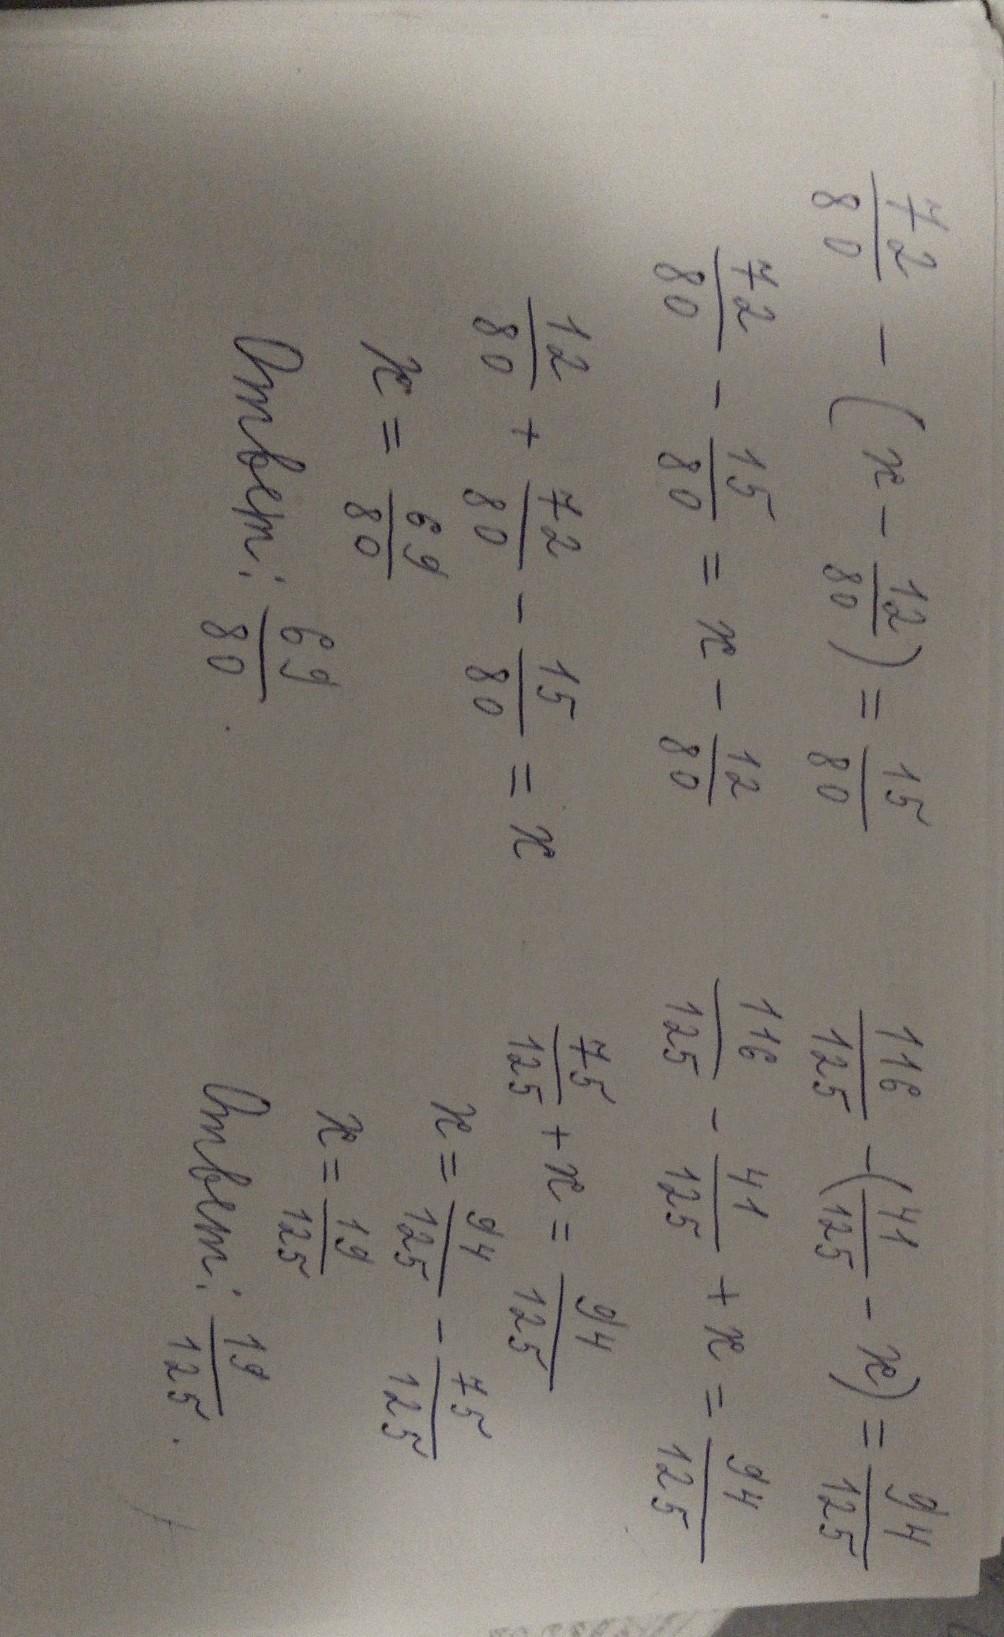 72/80 - (x - 12/80) = 15/80
72/80 - 15/80 = x - 12/80
12/80 + 72/80 - 15/80 = x
x = 69/80
Ответ: 69/80.
116/125 - (41/125 - x) = 94/125
116/125 - 41/125 + x = 94/125
75/125 + x = 94/125
x = 94/125 - 75/125
x = 19/125
Ответ: 19/125.